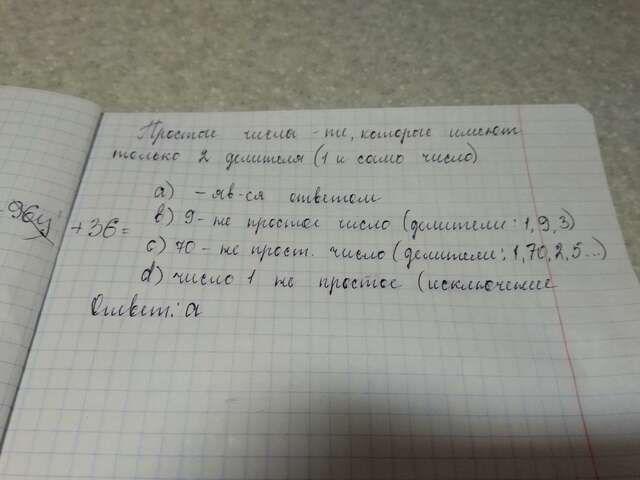 Простые числы - те, которые имеют
только 2 делителя (1 и само число)
а) - яв-ся ответом
96y
+36=
b) 9 - не простое число (делители: 1, 9, 3)
c) 70 - не прост. число (делители: 1, 70, 2, 5...)
d) число 1 не простое (исключение
Ответ: а